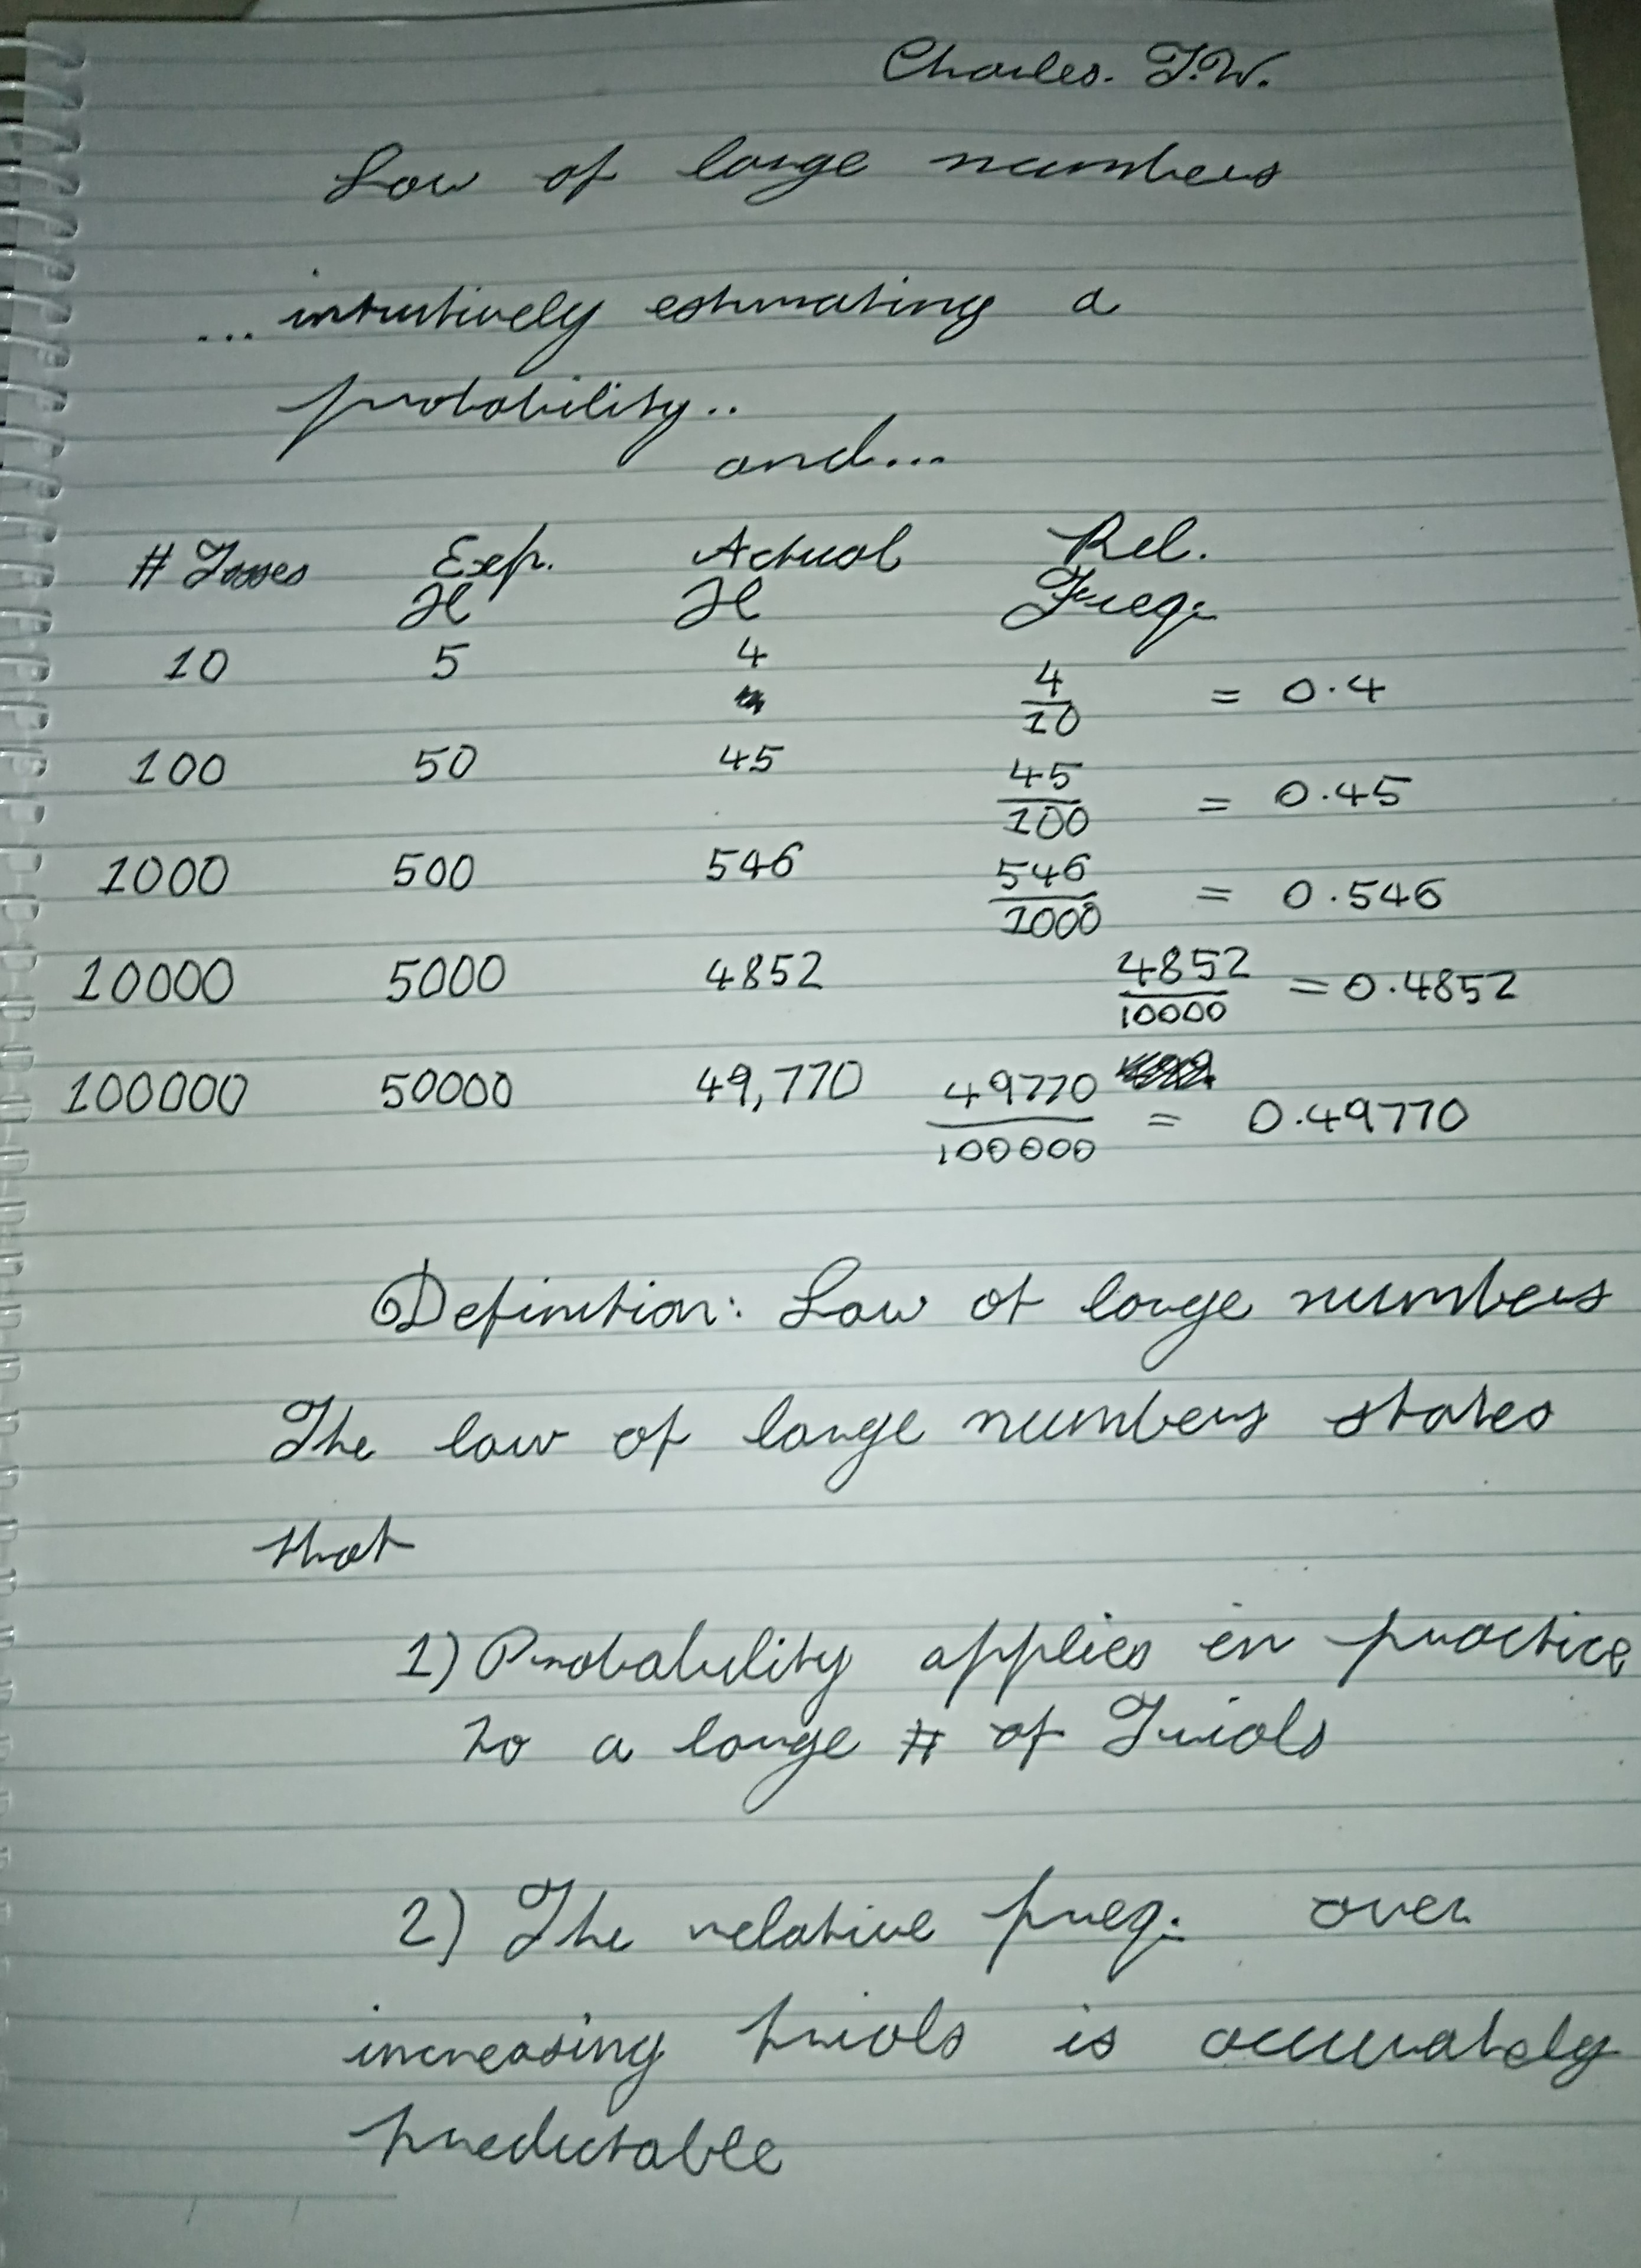 Charles. T.W.
Law of large numbers
... intuitively estimating a
probability..
and...
# Tosses Exp. H Actual H Rel. Freq.
10 5 4 4/10 = 0.4
100 50 45 45/100 = 0.45
1000 500 546 546/1000 = 0.546
10000 5000 4852 4852/10000 = 0.4852
100000 50000 49,770 49770/100000 = 0.49770
Definition: Law of large numbers
The law of large numbers states
that
1) Probability applies in practice
to a large # of Trials
2) The relative freq. over
increasing trials is accurately
predictable